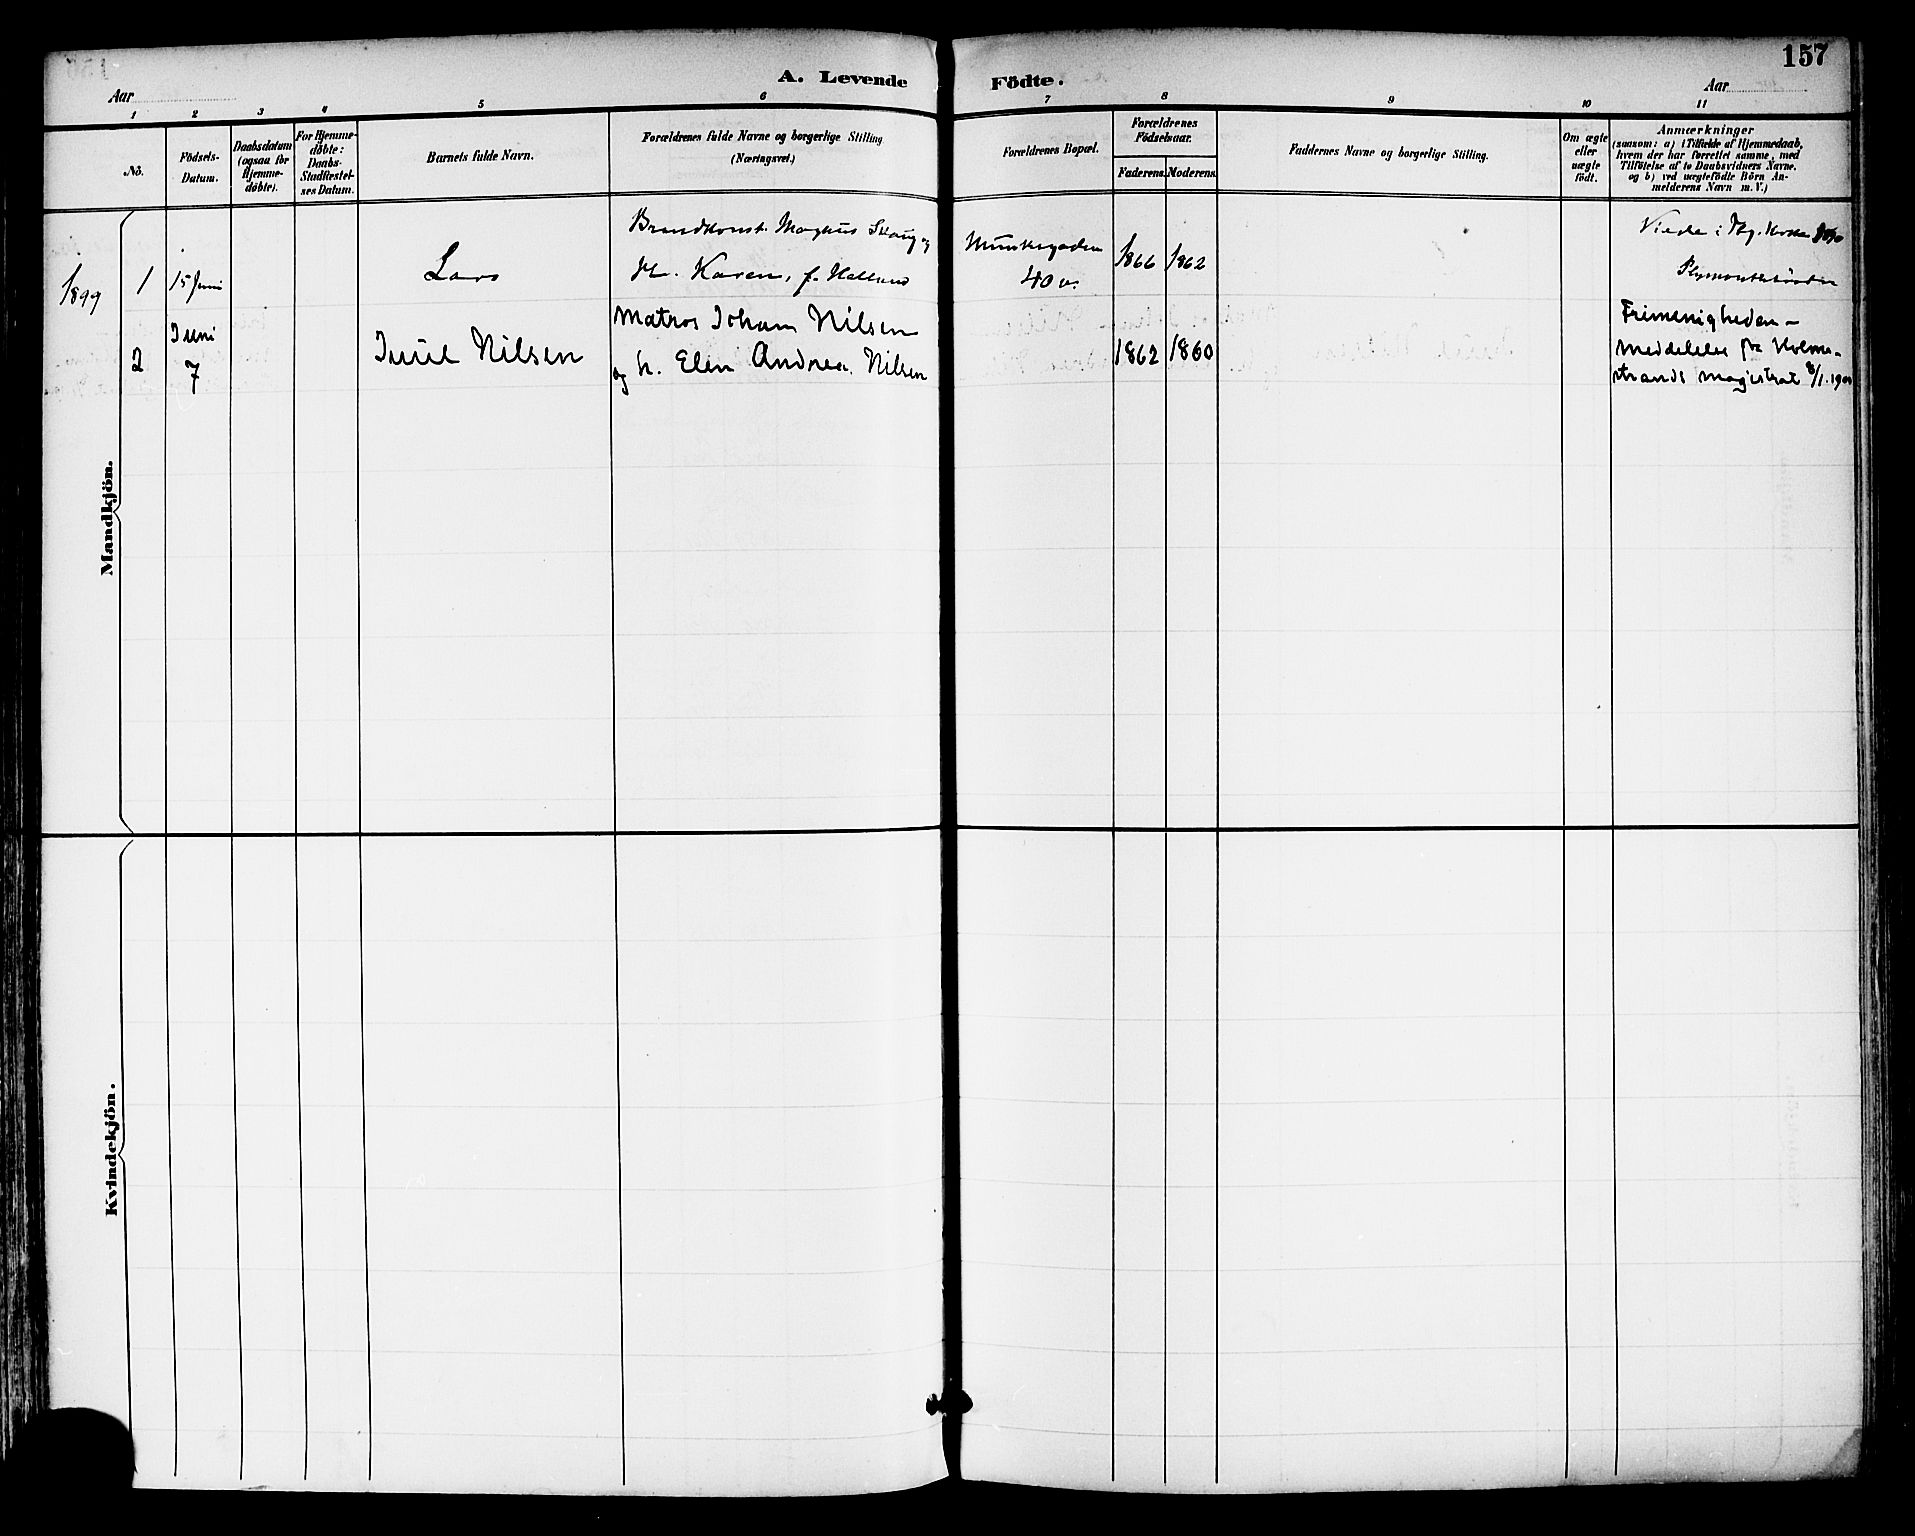 157
A. Levende Födte.
Aar
Aar
1 2 3 4 5 6 7 8 9 10 11
No.
Födsels-
Datum.
Daabsdatum
(ogsaa for
Hjemme-
døbte).
For Hjemme-
døbte:
Daabs-
Stadfæstel-
ses Datum.
Barnets fulde Navn.
Forældrenes fulde Navne og borgerlige Stilling
(Næringsvei.)
Forældrenes Bopæl.
Forældrenes
Födselsaar.
Faderens. Moderens.
Faddernes Navne og borgerlige Stilling.
Om ægte
eller
uægte
født.
Anmærkninger
(saasom: a) i Tilfælde af Hjemmedaab,
hvem der har forrettet samme, med
Tilföielse af to Daabsvidners Navne.
og b) ved uægtefödte Börn An-
melderens Navn m. V.)
Mandkjön.
1899
1
15 Juni
Lars
Magnus Skaug og
H. Karen, f.
40
1866 1862
Viede i
2
Juni
7
Juul Nilsen
Matros Johan Nilsen
og h. Elen Andrea Nilsen
1862 1860
Frimenigheden
meddelelse fra Holme-
strands magistrat 8/1.1900
Kvindekjön.